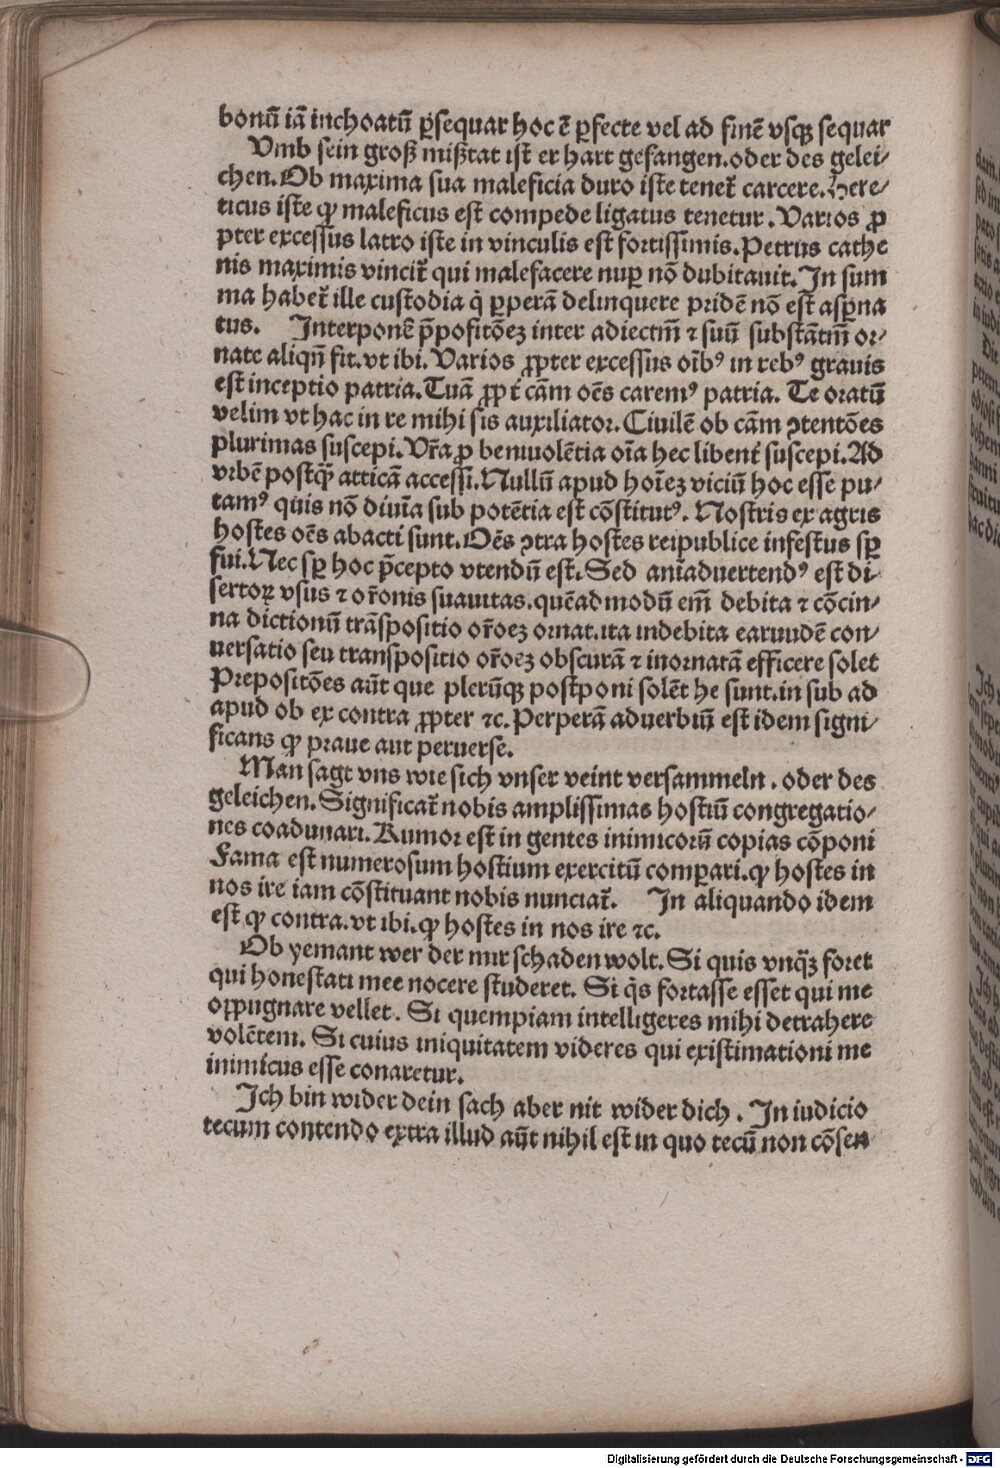 bonū iā inchoatū ꝑsequar hoc ē ꝑfecte vel ad finē vsqꝫ sequar
Vmb sein groß mißtat ist er hart gefangen.oder des gelei⸗
chen.Ob maxima sua maleficia duro iste tenet̄ carcere.Here⸗
ticus iste ꝙ maleficus est compede ligatus tenetur.Varios ꝓ
pter excessus latro iste in vinculis est fortissimis.Petrus cathe
nis maximis vincit̄ qui malefacere nuꝑ nō dubitauit.In sum
ma habet̄ ille custodia q̇ ꝑperā delinquere pridē nō est asꝑna
tus. Interponē p̄positōeꝫ inter adiectm̄ ⁊ suū substātm̄ or⸗
nate aliqn̄ fit.vt ibi.Varios ꝓpter excessus oīb⁹ in reb⁹ grauis
est inceptio patria.Tuā ꝓpt̄ cām oēs carem⁹ patria. Te oratū
velim vt hac in re mihi sis auxiliator.Ciuilē ob cām ↄtentōes
plurimas suscepi.Vr̄a ꝓ beniuolētia oīa hec libent̄ suscepi.Ad
vrbē postꝙ̄ atticā accessi.Nullū apud hoīeꝫ viciū hoc esse pu⸗
tam⁹ quis nō diuīa sub potētia est cōstitut⁹. Nostris ex agris
hostes oēs abacti sunt.Oēs ↄtra hostes reipublice infestus sꝑ
fui.Nec sꝑ hoc p̄cepto vtendū est.Sed aniaduertend⁹ est di⸗
sertoꝝ vsus ⁊ or̄onis suauitas.quēadmodū em̄ debita ⁊ cōcin⸗
na dictionū trāspositio or̄oeꝫ ornat.ita indebita earundē con⸗
uersatio seu transpositio or̄oeꝫ obscurā ⁊ inornatā efficere solet
Prepositōes aūt que plerūqꝫ postponi solēt he sunt.in sub ad
apud ob ex contra ꝓpter ⁊c.Perperā aduerbiū est idem signi⸗
ficans ꝙ praue aut peruerse.
Man sagt vns wie sich vnser veint versammeln . oder des
geleichen.Significat̄ nobis amplissimas hostiū congregatio⸗
nes coadunari.Rumor est in gentes inimicorū copias cōponi
Fama est numerosum hostium exercitū comꝑari.ꝙ hostes in
nos ire iam cōstituant nobis nunciat̄. In aliquando idem
est ꝙ contra.vt ibi.ꝙ hostes in nos ire ⁊c.
Ob yemant wer der mir schaden wolt.Si quis vnqꝫ̄ foret
qui honestati mee nocere studeret. Si q̇s fortasse esset qui me
oppugnare vellet. Si quempiam intelligeres mihi detrahere
volētem. Si cuius iniquitatem videres qui existimationi me
inimicus esse conaretur.
Ich bin wider dein sach aber nit wider dich . In iudicio
tecum contendo extra illud aūt nihil est in quo tecū non cōsen
Digitalisierung gefördert durch die Deutsche Forschungsgemeinschaft - DFG